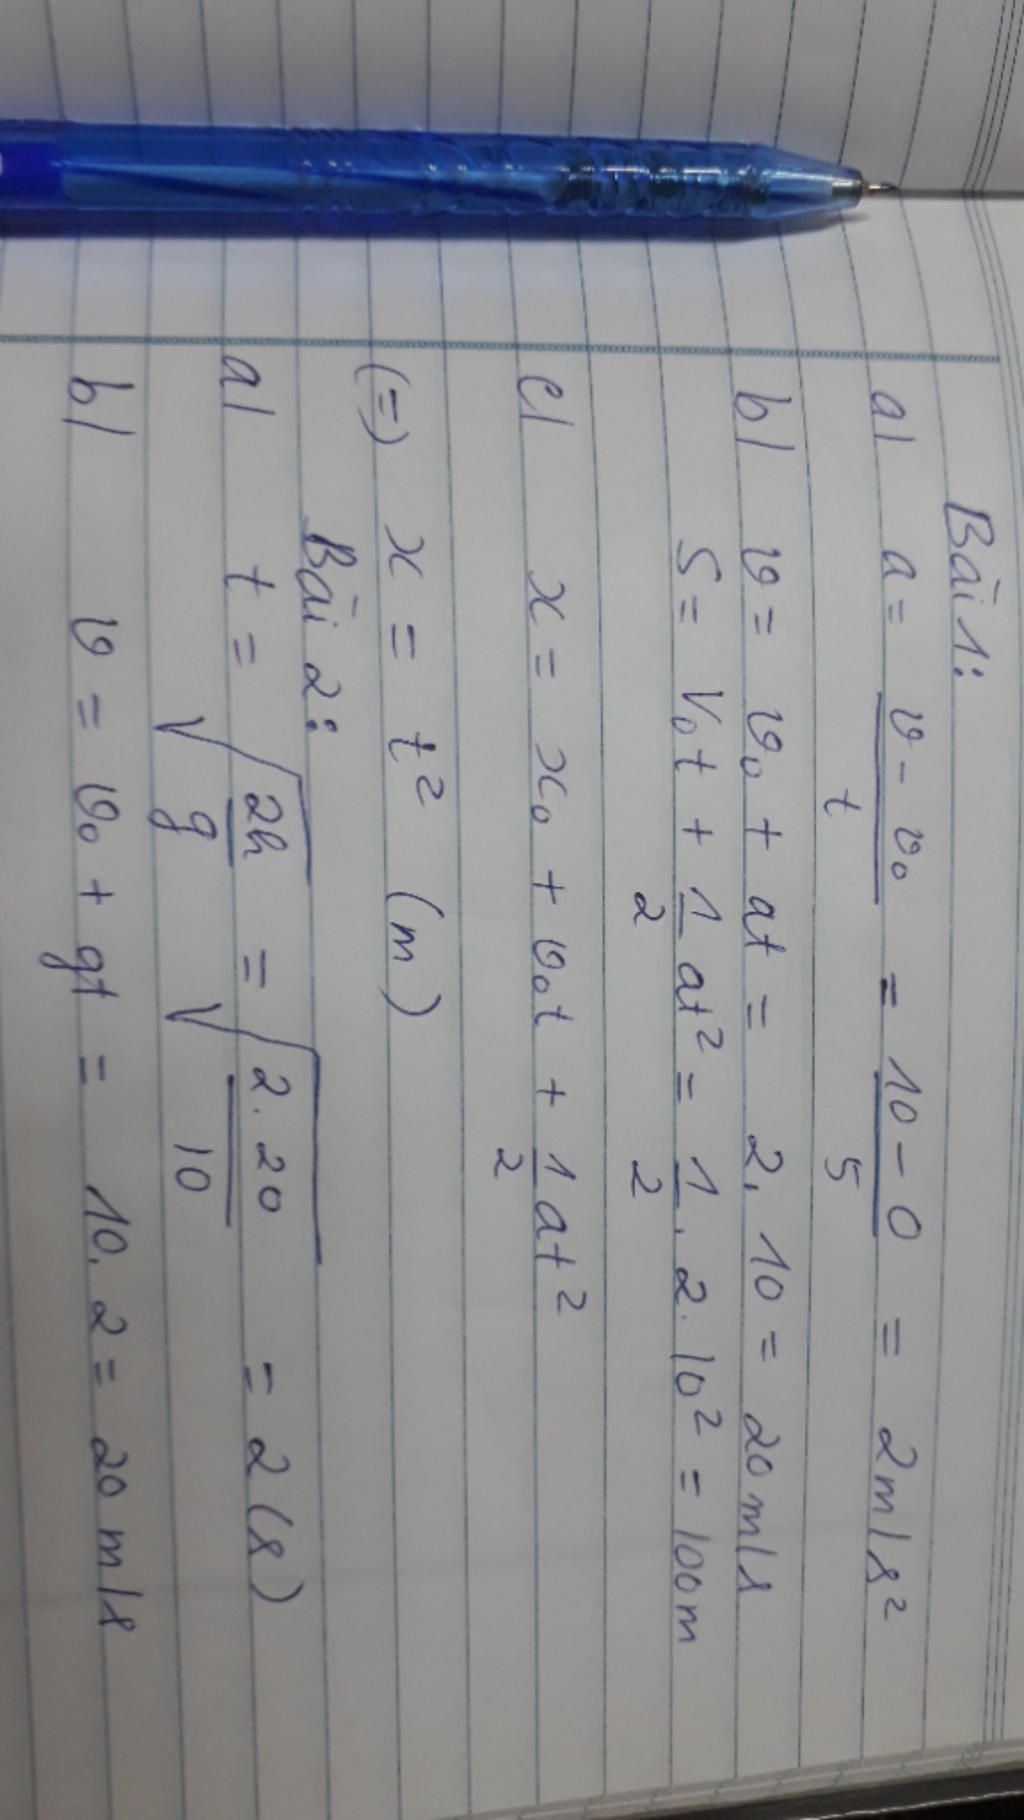 Bài 1:
a) a = (v - v₀)/t = (10 - 0)/5 = 2m/s²
b) v = v₀ + at = 2.10 = 20m/s
S = V₀t + 1/2 at² = 1/2 . 2. 10² = 100m
c) x = x₀ + v₀t + 1/2 at²
(=) x = t² (m)
Bài 2:
a) t = √(2h/g) = √(2.20/10) = 2 (s)
b) v = v₀ + gt = 10. 2 = 20 m/s